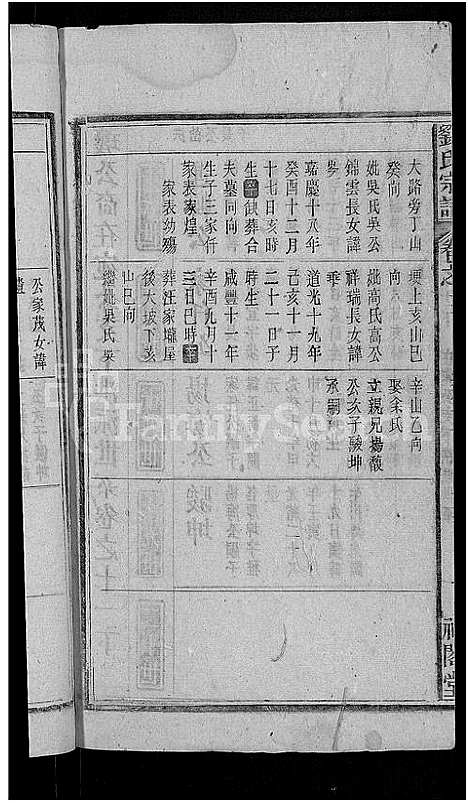 劉氏宗譜
大路旁丁山
癸向
妣吳氏吳公
錦雲長女諱
嘉慶十八年
癸酉十二月
十七日亥時
生 缺葬合
夫墓同向
生子三家仟
家表家煌
家表幼殤
堙上亥山巳
向
妣高氏高公
祥瑞長女諱
道光十九年
己亥十一月
二十一日子
時生
咸豐十一年
辛酉九月十
三日巳時
葬汪家壠屋
後大坡下亥
山巳向
繼妣吳氏吳
公家茂女諱
辛山乙向
娶余氏
立親兄揚馥
公次子駿坤
承嗣
祿閣堂
FamilySearch